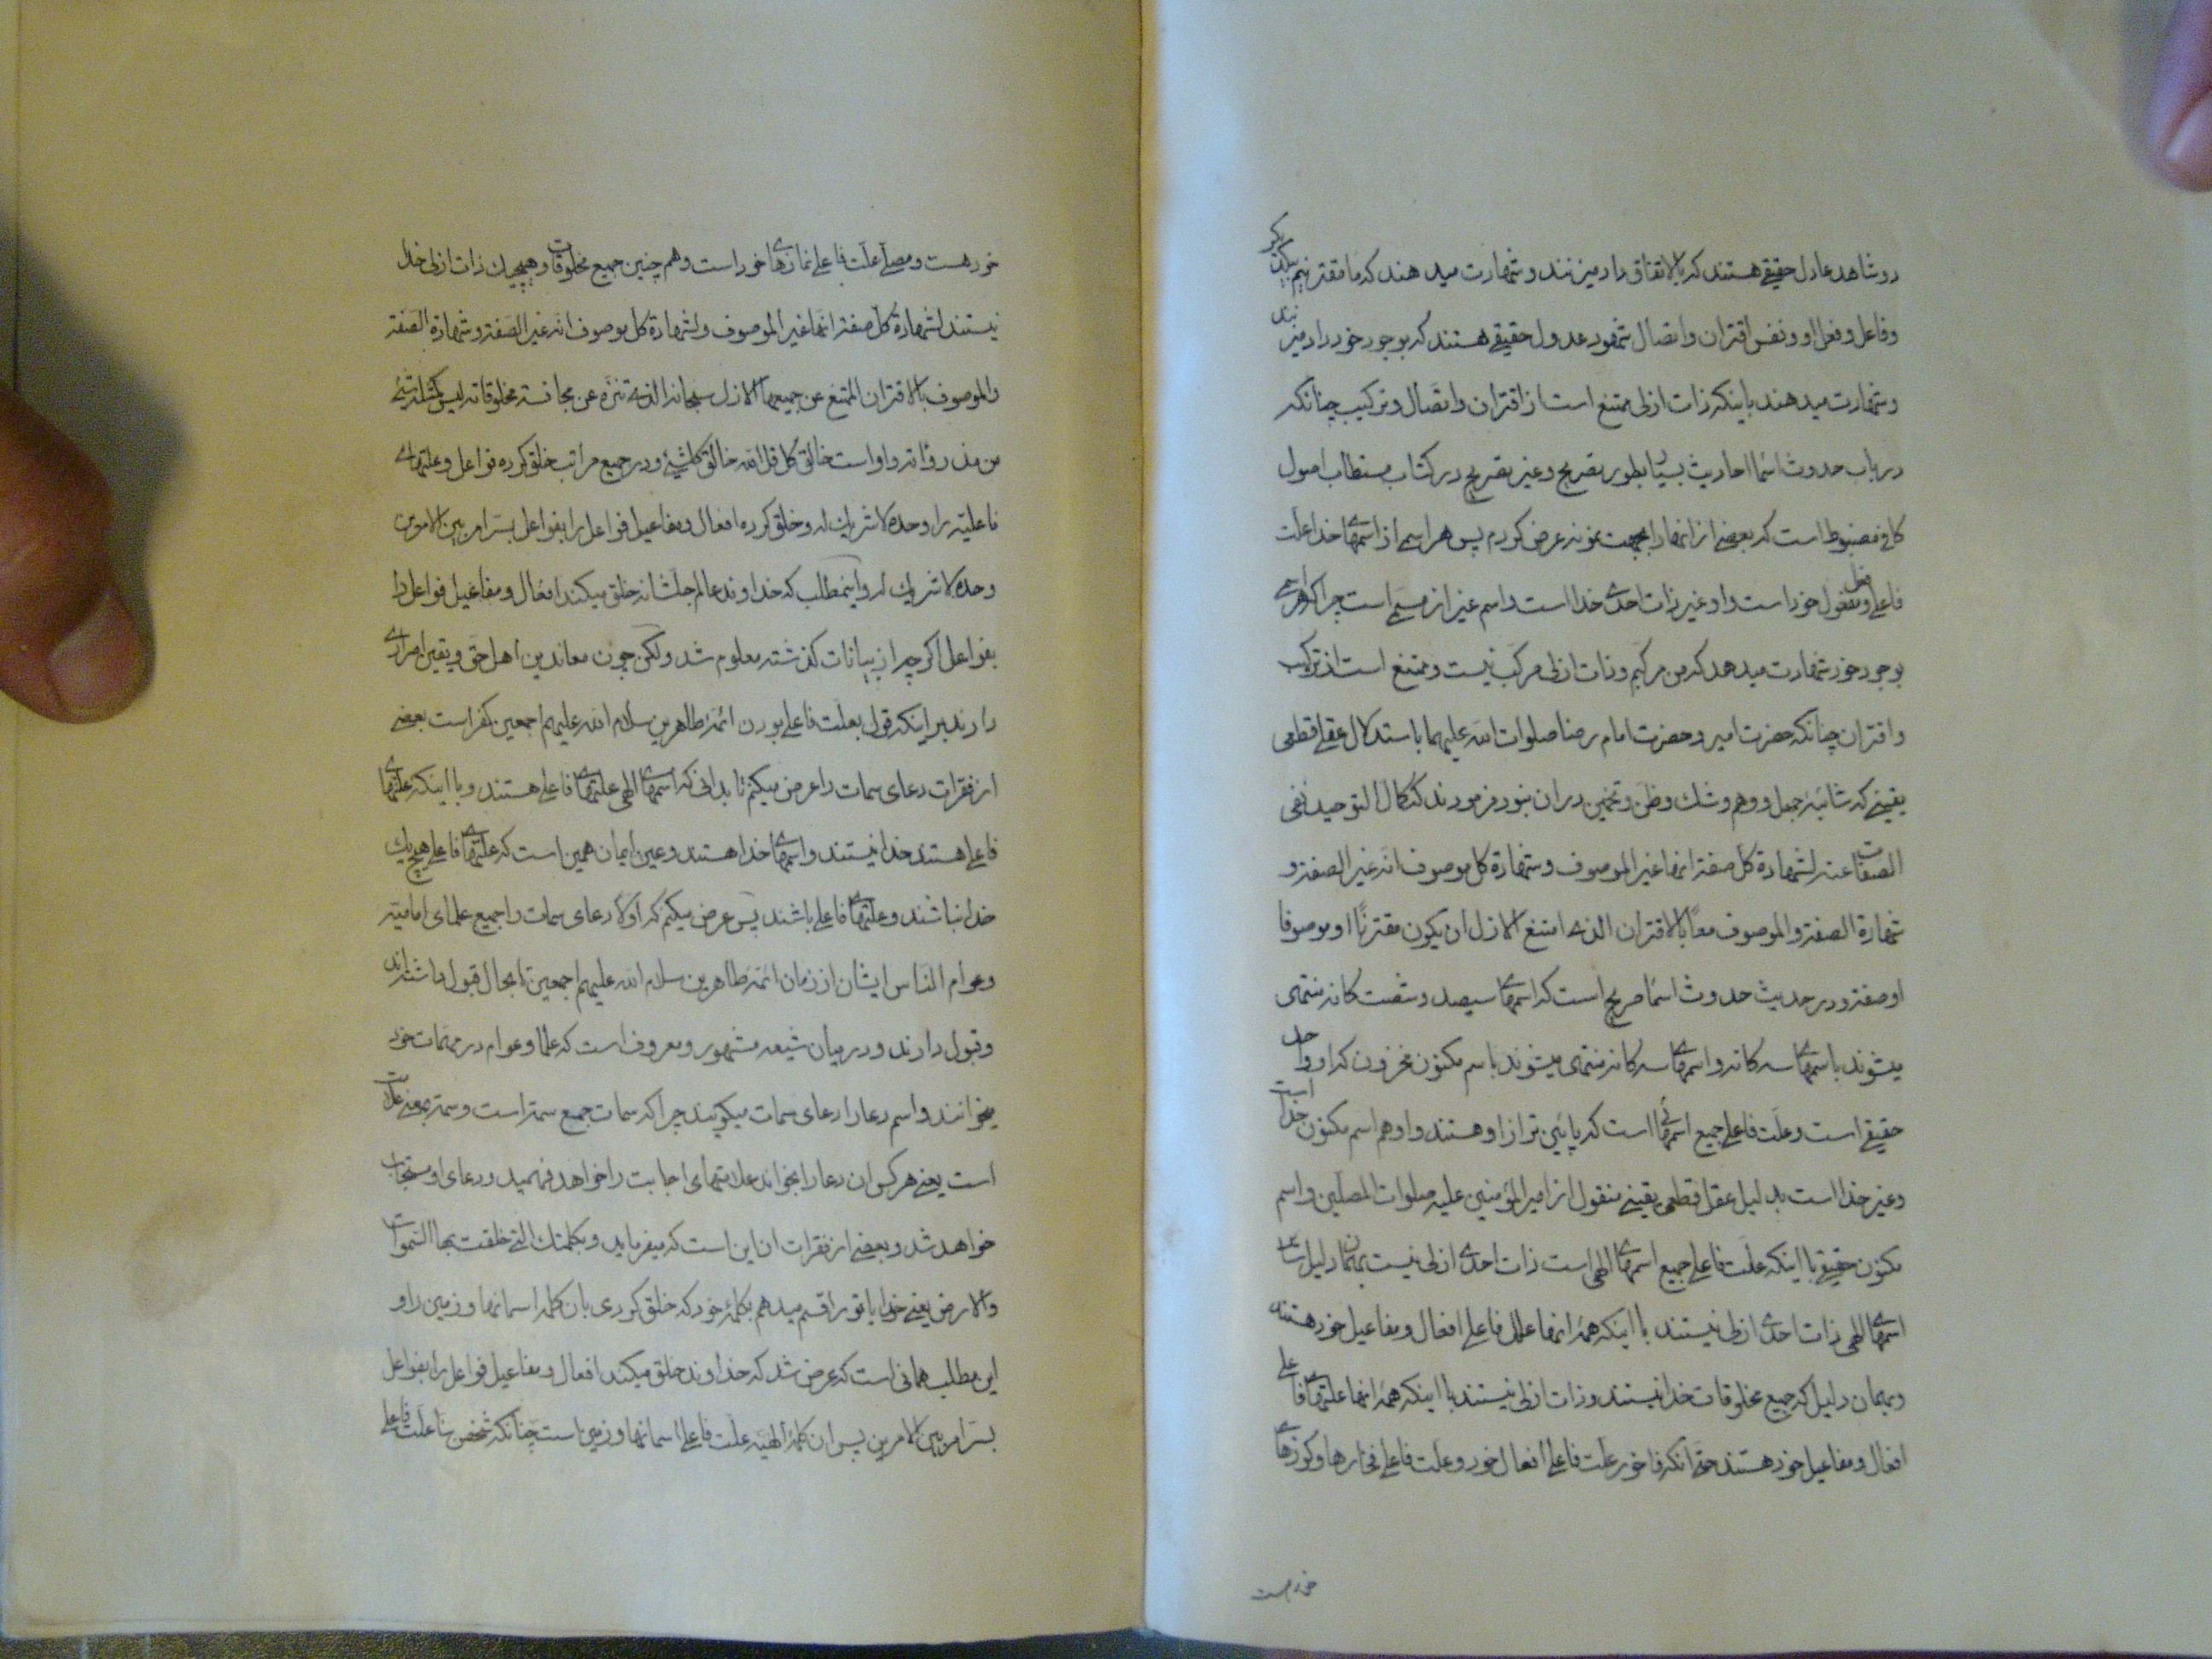 دو شاهد عادل حقیقی هستند که بالاتفاق داد میزنند و شهادت میدهند که ما مقترنیم بیکدیگر
و فاعل و فعل او و نفس اقتران و اتصال شهود عدول حقیقی هستند که بوجود خود داد میزنند
و شهادت میدهند باینکه ذات ازلی ممتنع است از اقتران و اتصال و ترکیب چنانکه
در باب حدوث اسما احادیث بسیار بطور تصریح و غیر تصریح در کتاب مستطاب اصول
کافی مضبوط است که بعضی از انها را بجهت نمونه عرض کردم پس هر اسمی از اسمهای خدا علت
فاعلی فعل و مفعول خود است و او غیر ذات احدی خدا است و اسم غیر از مسمی است چرا که هر اسمی
بوجود خود شهادت میدهد که من مرکبم و ذات ازلی مرکب نیست و ممتنع است از ترکیب
و اقتران چنانکه حضرت امیر و حضرت امام رضا صلوات الله علیهما باستدلال عقلی قطعی
یقینی که شائبه جهل و وهم و شک و ظن و تخمین در ان نبود فرمودند که کمال التوحید نفی
الصفات عنه لشهادة کل صفة انها غیر الموصوف و شهادة کل موصوف انه غیر الصفة و
شهادة الصفة و الموصوف معاً بالاقتران الذی امتنع الازل ان یکون مقترناً او موصوفا
او صفة و در حدیث حدوث اسما صریح است که اسمهای سیصد و شصت کانه منتهی
میشوند باسمهای سه کانه و اسمهای سه کانه منتهی میشوند باسم مکنون مخزون که او واحد
حقیقی است و علت فاعلی جمیع اسمهائی است که پائین تر از او هستند و او هم اسم مکنون خدا است
و غیر خدا است بدلیل عقل قطعی یقینی منقول از امیر المؤمنین علیه صلوات المصلین و اسم
مکنون حقیقی با اینکه علت فاعلی جمیع اسمهای الهی است ذات احدی ازلی نیست بهمان دلیل سایر
اسمهای الهی ذات احدی ازلی نیستند با اینکه همه انها علل فاعلی افعال و مفاعیل خود هستند
و بهمان دلیل که جمیع مخلوقات خدا نیستند و ذات ازلی نیستند با اینکه همه انها علتهای فاعلی
افعال و مفاعیل خود هستند حتی انکه فاخور علت فاعلی افعال خود و علت فاعلی فخارها و کوزهای
خود هست
خود هست و مصلی علت فاعلی نمازهای خود است و هم چنین جمیع مخلوقات و هیچیک ذات ازلی خدا
نیستند لشهادة کل صفة انها غیر الموصوف و لشهادة کل موصوف انه غیر الصفة و شهادة الصفة
و الموصوف بالاقتران الممتنع عن جمیعها الازل سبحانه الذی تنزه عن مجانسة مخلوقاته لیس کمثله شیء
من مذروّاته و او است خالق کل قل الله خالق کلشیء و در جمیع مراتب خلق کرده فواعل و علتهای
فاعلیه را وحده لا شریک له و خلق کرده افعال و مفاعیل فواعل را بفواعل بسرّ امر بین الامرین
وحده لا شریک له و اینمطلب که خداوند عالم جلشانه خلق میکند افعال و مفاعیل فواعل را
بفواعل اکرچه از بیانات کذشته معلوم شد ولکن چون معاندین اهل حق و یقین اصراری
دارند بر اینکه قول بعلت فاعلی بودن ائمه طاهرین سلام الله علیهم اجمعین کفر است بعضی
از فقرات دعای سمات را عرض میکنم تا بدانی که اسمهای الهی علتهای فاعلی هستند و با اینکه علتهای
فاعلی هستند خدا نیستند و اسمهای خدا هستند و عین ایمان همین است که علتهای فاعلی هیچ یک
خدا نباشند و علتهای فاعلی باشند پس عرض میکنم که اولا دعای سمات را جمیع علمای امامیه
و عوام الناس ایشان از زمان ائمه طاهرین سلام الله علیهم اجمعین تا بحال قبول داشته اند
و قبول دارند و در میان شیعه مشهور و معروف است که علما و عوام در مهمات خود
میخوانند و اسم دعا را دعای سمات میکویند چرا که سمات جمع سمة است و سمة بمعنی علامت
است یعنی هر کس ان دعا را بخواند علامتهای اجابت را خواهد فهمید و دعای او مستجاب
خواهد شد و بعضی از فقرات ان این است که میفرماید و بکلمتک التی خلقت بها السموات
و الارض یعنی خدایا تو را قسم میدهم بکلمهٔ خود که خلق کردی بان کلمه اسمانها و زمین را و
این مطلب همانی است که عرض شد که خداوند خلق میکند افعال و مفاعیل فواعل را بفواعل
بسرّ امر بین الامرین پس ان کلمهٔ الهیه علت فاعلی اسمانها و زمین است چنانکه شخص بنا علت فاعلی